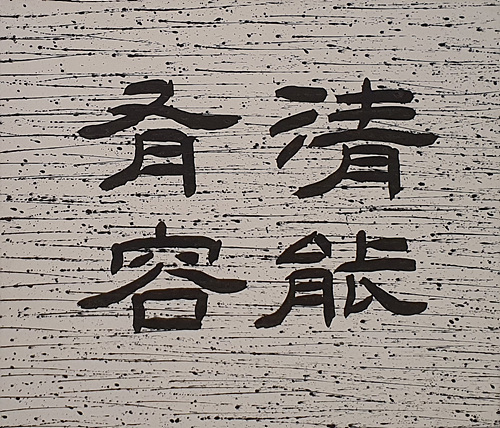 清能
有容